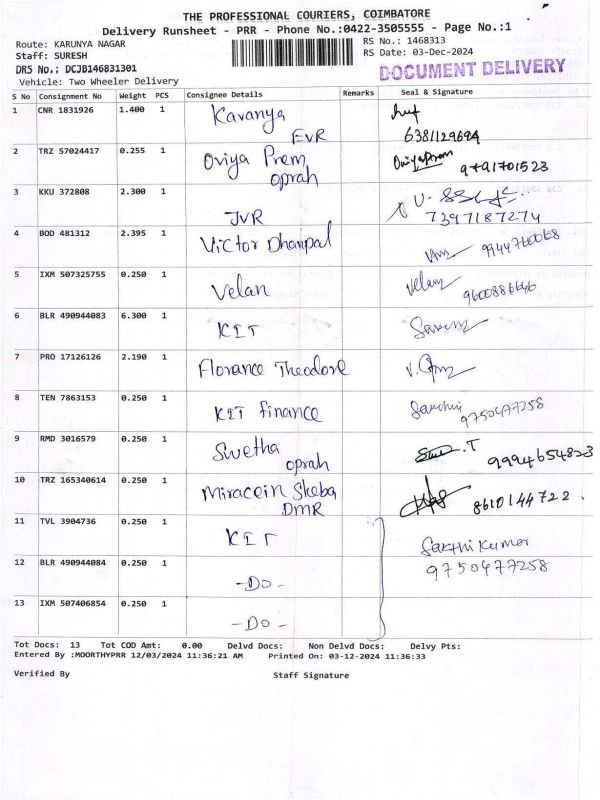 THE PROFESSIONAL COURIERS, COIMBATORE
Delivery Runsheet - PRR - Phone No.:0422-3505555 - Page No.:1
Route: KARUNYA NAGAR
RS No.: 1468313
Staff: SURESH
RS Date: 03-Dec-2024
DRS No.: DCJB146831301
DOCUMENT DELIVERY
Vehicle: Two Wheeler Delivery
S No Consignment No Weight PCS Consignee Details Remarks Seal & Signature
1 CNR 1831926 1.400 1 Kavanya
EVR 6381129694
2 TRZ 57024417 0.255 1 Oviya Prem Oviyaprem 9791701523
oprah
3 KKU 372808 2.300 1
JVR 7397187274
4 BOD 481312 2.395 1 Victor Dhanpal
5 IXM 507325755 0.250 1 Velan Velan
6 BLR 490944083 6.300 1 KIT
7 PRO 17126126 2.190 1 Florance Theodore
8 TEN 7863153 0.250 1 KIT finance Sakthi 9750477258
9 RMD 3016579 0.250 1 Swetha
oprah 9994654823
10 TRZ 165340614 0.250 1 Sheba
DMR 8610144722.
11 TVL 3904736 0.250 1 KIT Sakthi Kumar
9750477258
12 BLR 490944084 0.250 1 -Do-
13 IXM 507406854 0.250 1 -Do-
Tot Docs: 13 Tot COD Amt: 0.00 Delvd Docs: Non Delvd Docs: Delvy Pts:
Entered By :MOORTHYPRR 12/03/2024 11:36:21 AM Printed On: 03-12-2024 11:36:33
Verified By Staff Signature